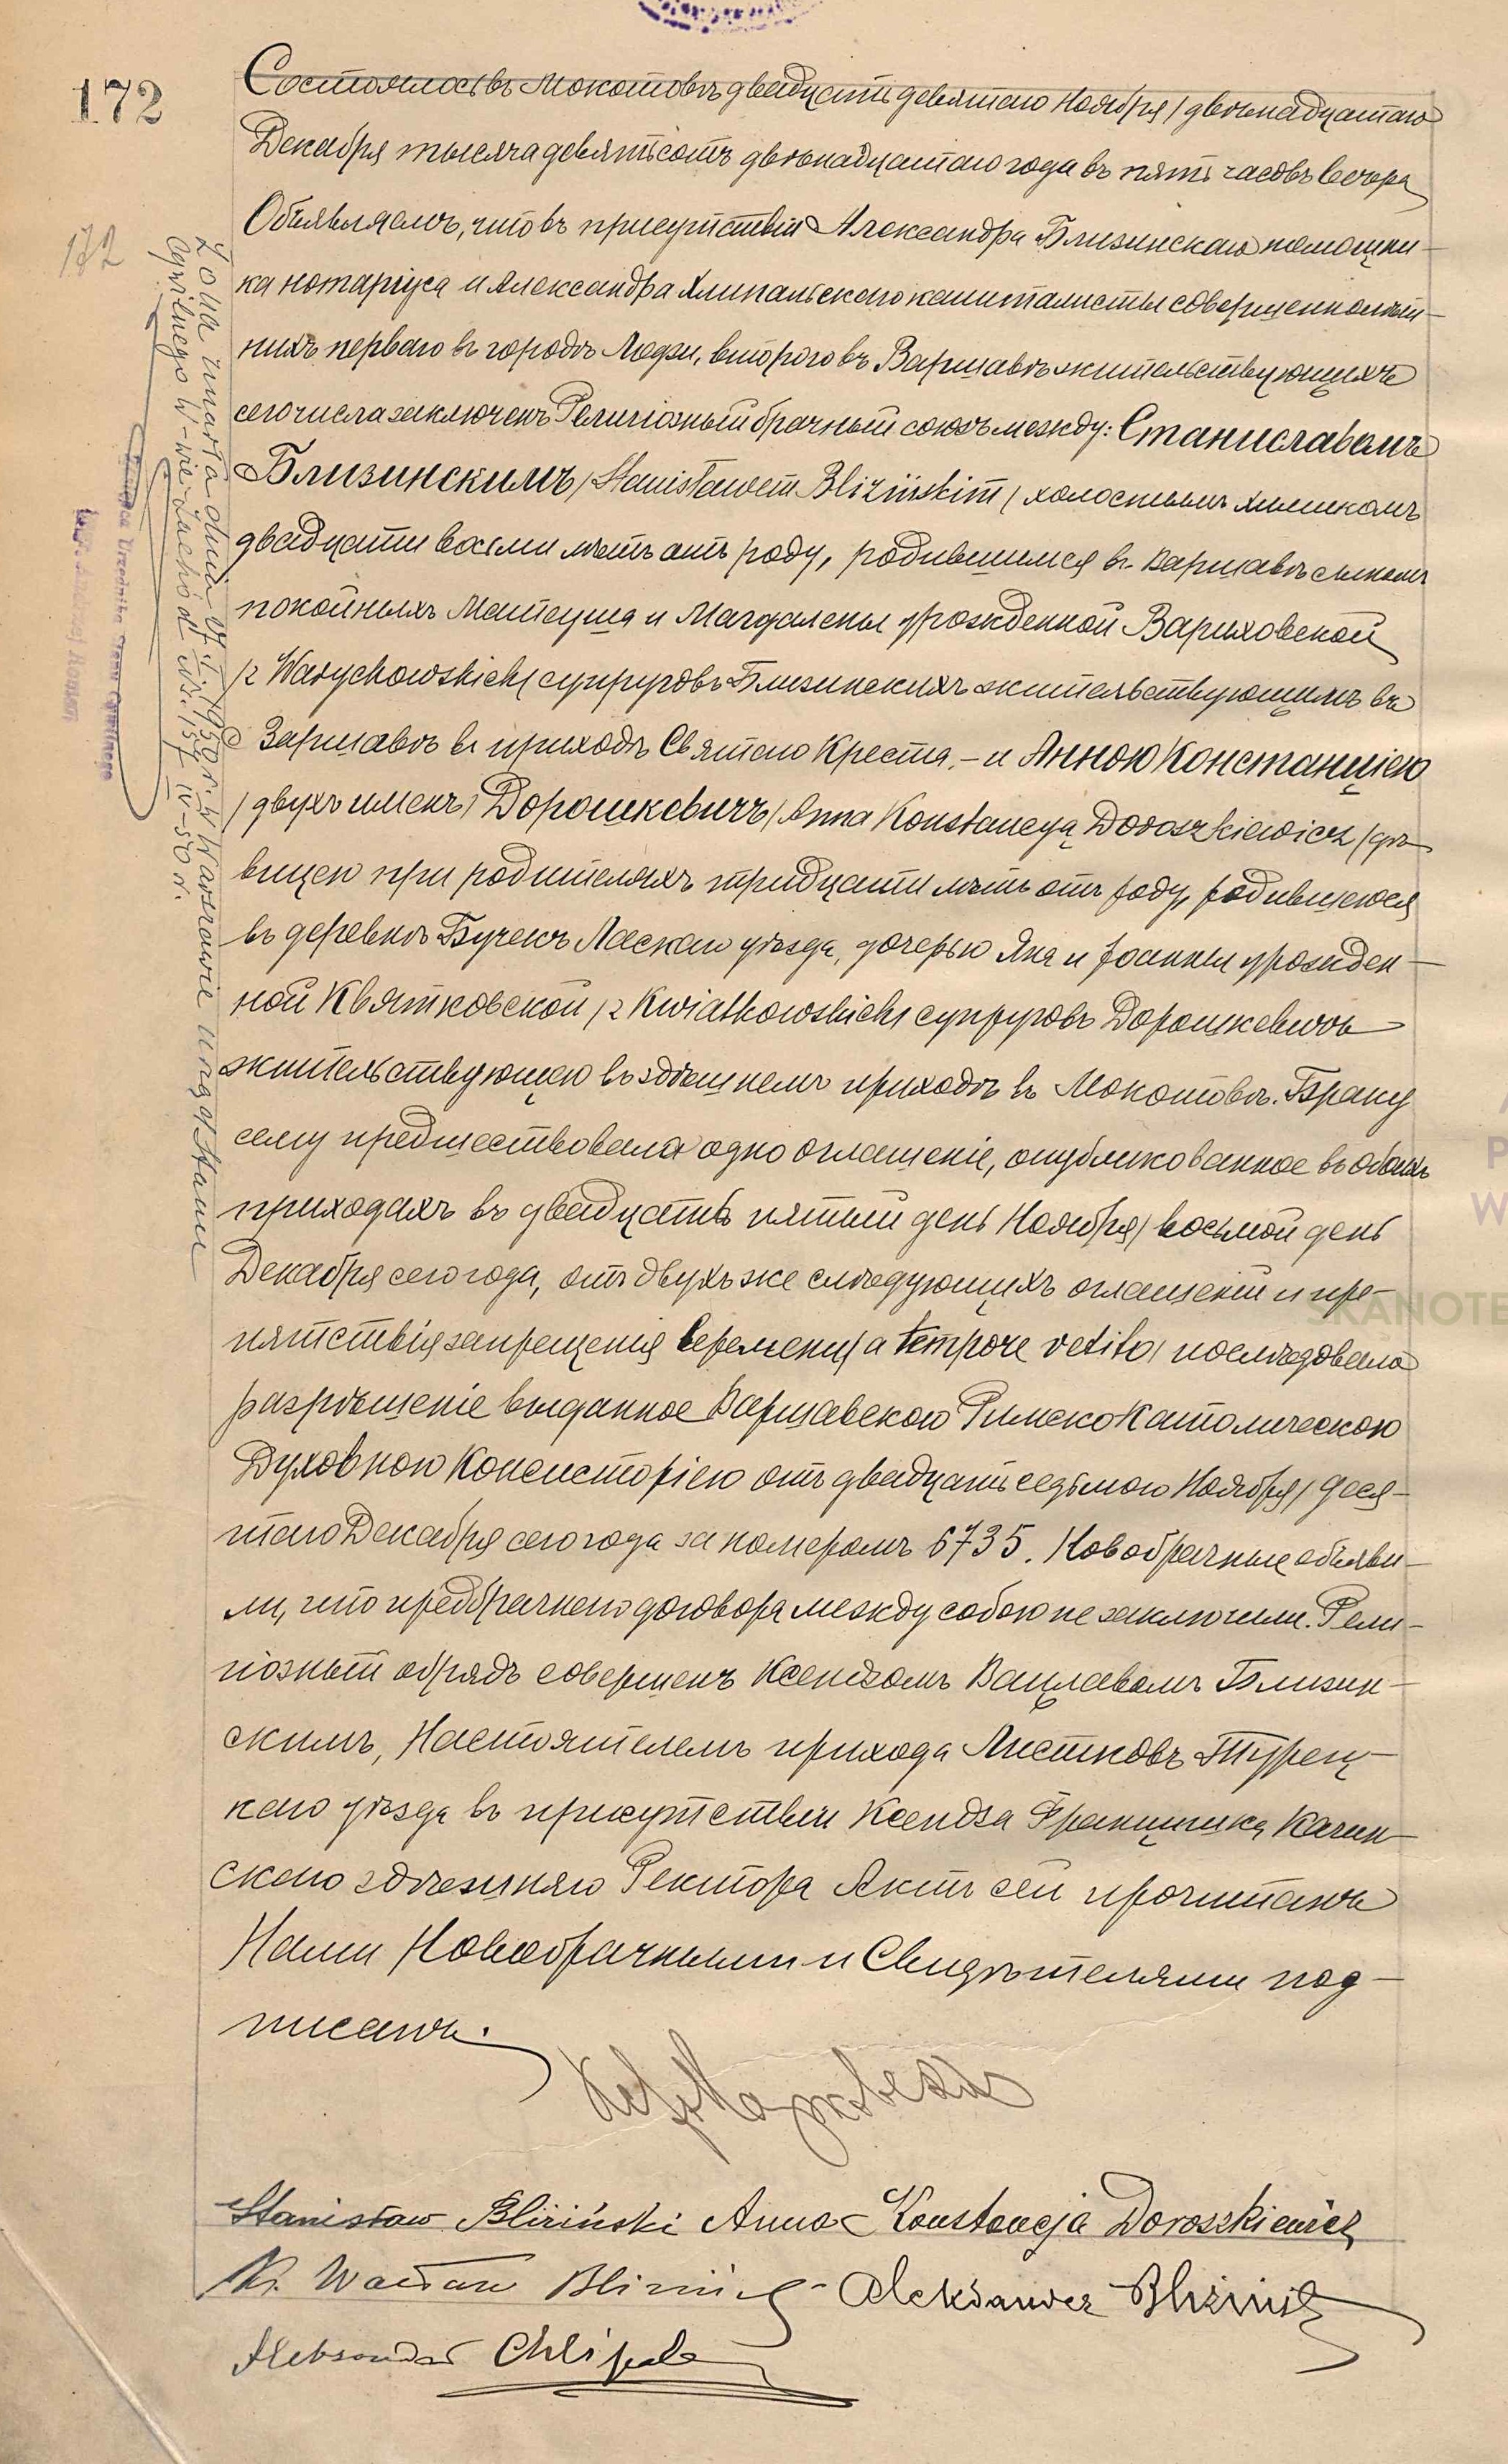 172
Состоялось въ Мокотовѣ двадцать девятаго Ноября / двѣнадцатаго
Декабря тысяча девятьсотъ двѣнадцатаго года въ пять часовъ вечера
Объявляемъ, что въ присутствіи Александра Близинскаго помощни-
172
ка нотаріуса и Александра Хлипальскаго капиталисты совершеннолѣт-
нихъ перваго въ городѣ Лодзи, второго въ Варшавѣ жительствующихъ
сего числа заключенъ Религіозный брачный союзъ между: Станиславомъ
Близинскимъ / Stanisławem Blizińskim / холостымъ химикомъ
двадцати восьми лѣтъ отъ роду, родившимся въ Варшавѣ сыномъ
покойныхъ Матеуша и Магдалены урожденной Вариховской
/z Warychowskich/ супруговъ Близинскихъ жительствующимъ въ
Варшавѣ въ приходѣ Святаго Креста, - и Анною Констанціею
/двухъ именъ/ Дорошкевичъ / Anna Konstancya Doroszkiewicz / дѣ-
вицею при родителяхъ тридцати лѣтъ отъ роду, родившеюся
въ деревнѣ Бучекъ Ласкаго уѣзда, дочерью Яна и Іоанны урожден-
ной Квятковской /z Kwiatkowskich/ супруговъ Дорошкевичъ
жительствующею въ здѣшнемъ приходѣ въ Мокотовѣ. Браку
сему предшествовало одно оглашеніе, опубликованное въ обоихъ
приходахъ въ двадцать пятый день Ноября / восьмой день
Декабря сего года, отъ двухъ же слѣдующихъ оглашеній и пре-
пятствія запрещенія времени / a tempore vetito / послѣдовало
разрѣшеніе выданное Варшавскою Римско Католическою
Духовною Консисторіею отъ двадцать седьмого Ноября / деся-
таго Декабря сего года за номеромъ 6735. Новобрачные объяви-
ли, что предбрачнаго договора между собою не заключили. Рели-
гіозный обрядъ совершенъ Ксендзомъ Вацлавомъ Близин-
скимъ, Настоятелемъ прихода Лисковъ Турец-
каго уѣзда въ присутствіи Ксендза Францишка Качин-
скаго здѣшняго Ректора Актъ сей прочитанъ
Нами Новобрачными и Свидѣтелями под-
писанъ.
Stanisław Bliziński Anna Konstancja Doroszkiewicz
Ks. Wacław Bliziński Aleksander Bliziński
Aleksander Chlipalski
Żona zmarła dnia 1950 r. w Warszawie Urząd Stanu
Cywilnego W-wie-Zachód Nr. IV-50 r.
SKANOTE
P
W